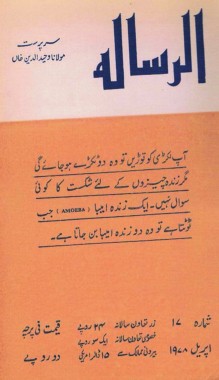 سرپرست
مولانا وحید الدین خاں
الرسالہ
آپ لکڑی کو توڑیں تو وہ دو ٹکڑے ہو جائے گی
مگر زندہ چیزوں کے لئے شکست کا کوئی
سوال نہیں۔ ایک زندہ امیبا (AMOEBA) جب
ٹوٹتا ہے تو وہ دو زندہ امیبا بن جاتا ہے۔
شمارہ ۱۷
اپریل ۱۹۷۸
زر تعاون سالانہ ۲۴ روپے
خصوصی تعاون سالانہ ایک سو روپے
بیرونی ممالک سے ۱۵ ڈالر امریکی
قیمت فی پرچہ
دو روپے